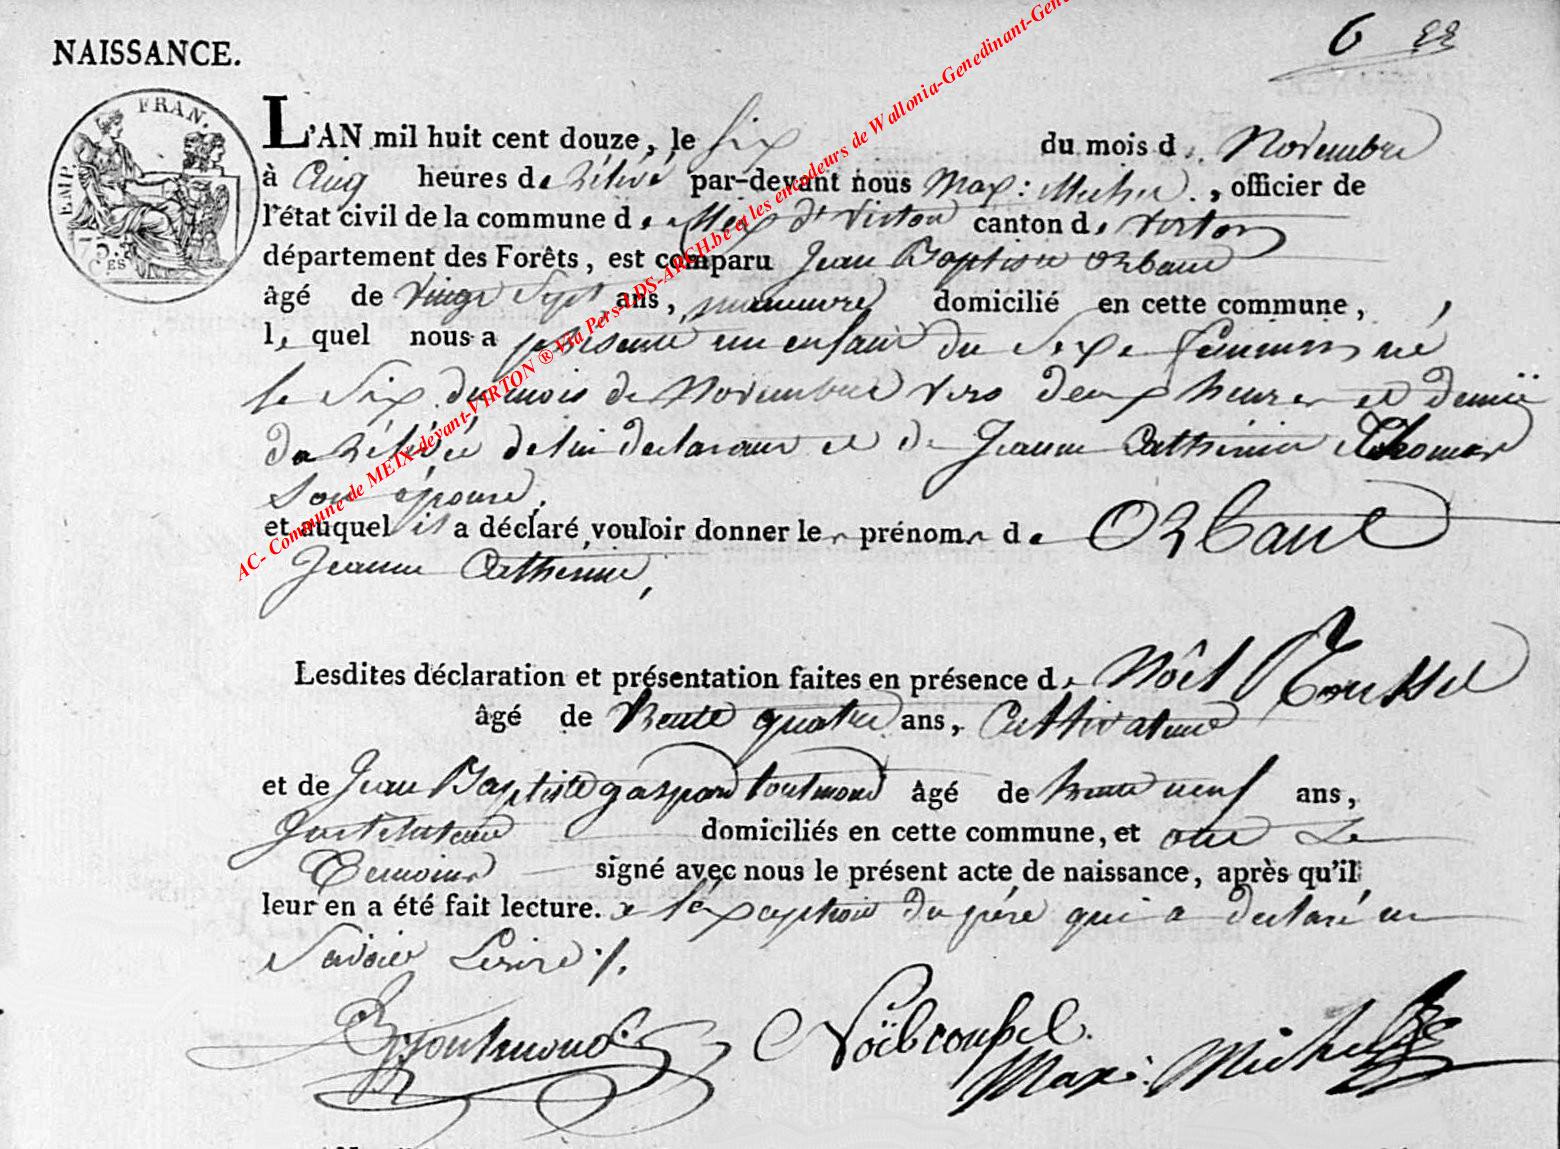 6 22
NAISSANCE.
EMP. FRAN.
75. CES
L'AN mil huit cent douze, le Six du mois de Novembre
à Cinq heures de Rélévé par-devant nous Max: Michel, officier de
l'état civil de la commune de Meix dt Virton canton de Virton
département des Forêts, est comparu Jean Baptiste Orban
âgé de Vingt Sept ans, manœuvre domicilié en cette commune,
le quel nous a présenté un enfant du Sexe feminin né
le Six du mois de Novembre Vers deux heures et demie
de Rélévée de lui déclarant et de Jeanne Catherine Thomas
Son épouse,
et auquel il a déclaré vouloir donner les prénoms de Orban
Jeanne Catherine,
Lesdites déclaration et présentation faites en présence de Noël
âgé de trente quatre ans, Cultivateur
et de Jean Baptiste gaspard toutmond âgé de trente neuf ans,
Instituteur domiciliés en cette commune, et ont Le
Temoins signé avec nous le présent acte de naissance, après qu'il
leur en a été fait lecture. a l'éxception du pére qui a declaré ne
Savoir Ecrire ./.
Max: Michel
AC- Commune de MEIX-devant-VIRTON ® Via Pers-LDS-ARCH.be et les encodeurs de Wallonia-Genedinant-Gen